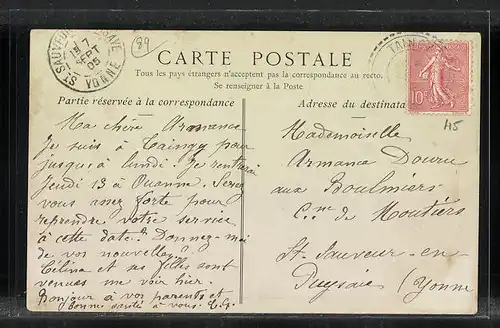 ST SAUVEUR
15 7
SEPT
05
YONNE
89
CARTE POSTALE
Tous les pays étrangers n'acceptent pas la correspondance au recto.
Se renseigner à la Poste
TAIN
10c
45
Partie réservée à la correspondance
Ma chère Armance
Je suis à Taingy pour
jusqu'à lundi. Je rentrerai
Jeudi 13 à Ouanne. Serez
vous assez forte pour
reprendre votre service
à cette date? Donnez-moi
de vos nouvelles?
Célina et ses filles sont
venues me voir hier.
Bonjour à vos parents et
bonne santé à vous.
Adresse du destinata
Mademoiselle
Armance
aux Boulmiers
Cne de Moutiers
St-Sauveur-en-
Puysaie (Yonne